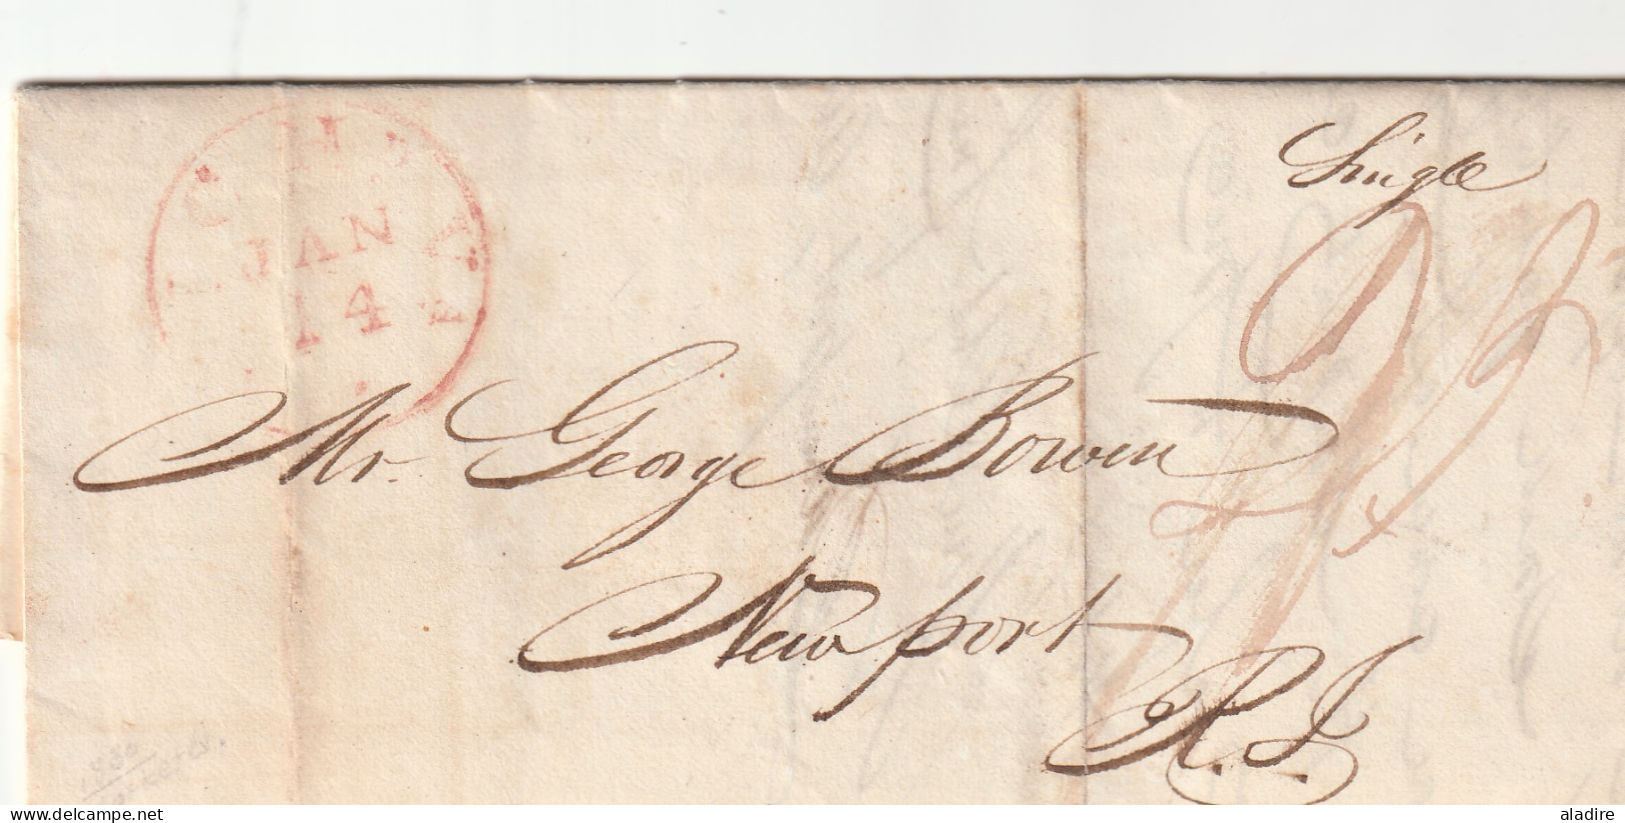 RICHD. VA.
JAN
14
Single
25
Mr. George Bowen
Newport
R. I.
1830
delcampe.net
aladire